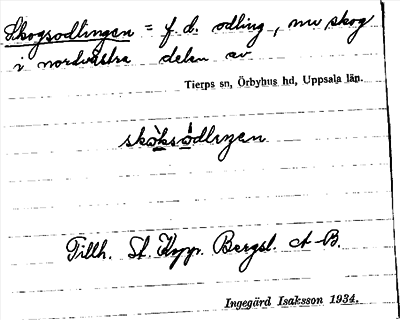 Skogsodlingen = f. d. odling, nu skog
i nordvästra delen av
Tierps sn, Örbyhus hd, Uppsala län.
skò̤ksò̤dlıŋen
Tillh. St. Kopp. Bergsl. A-B.
Ingegärd Isaksson 1934.